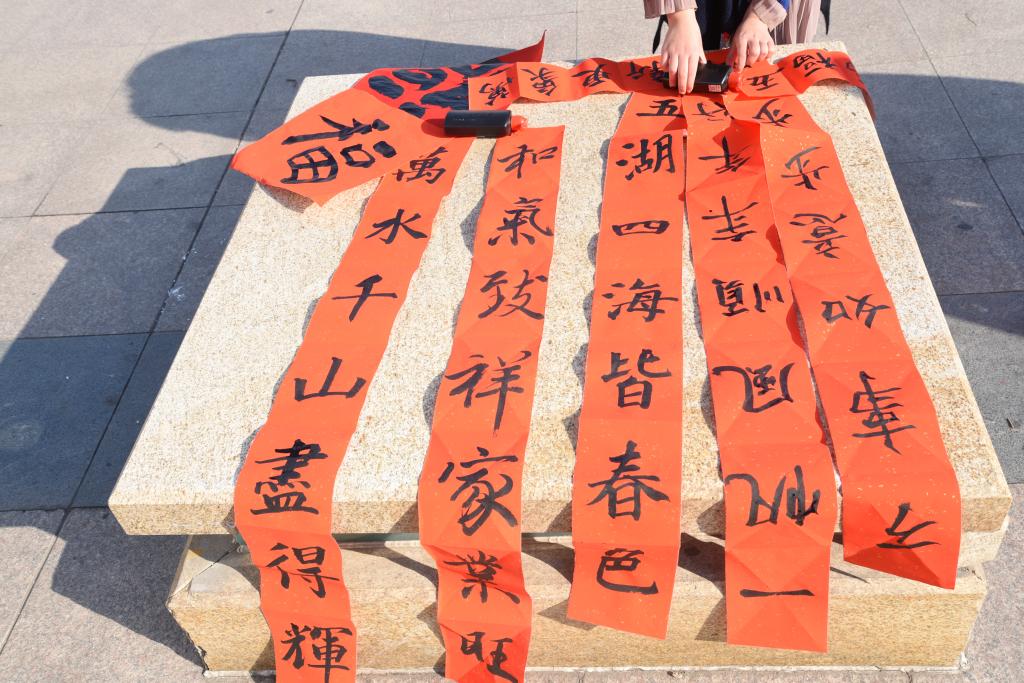 福
萬象更新
五福
萬水千山盡得輝
和氣致祥家業旺
五湖四海皆春色
一帆風順年年
万事如意步步